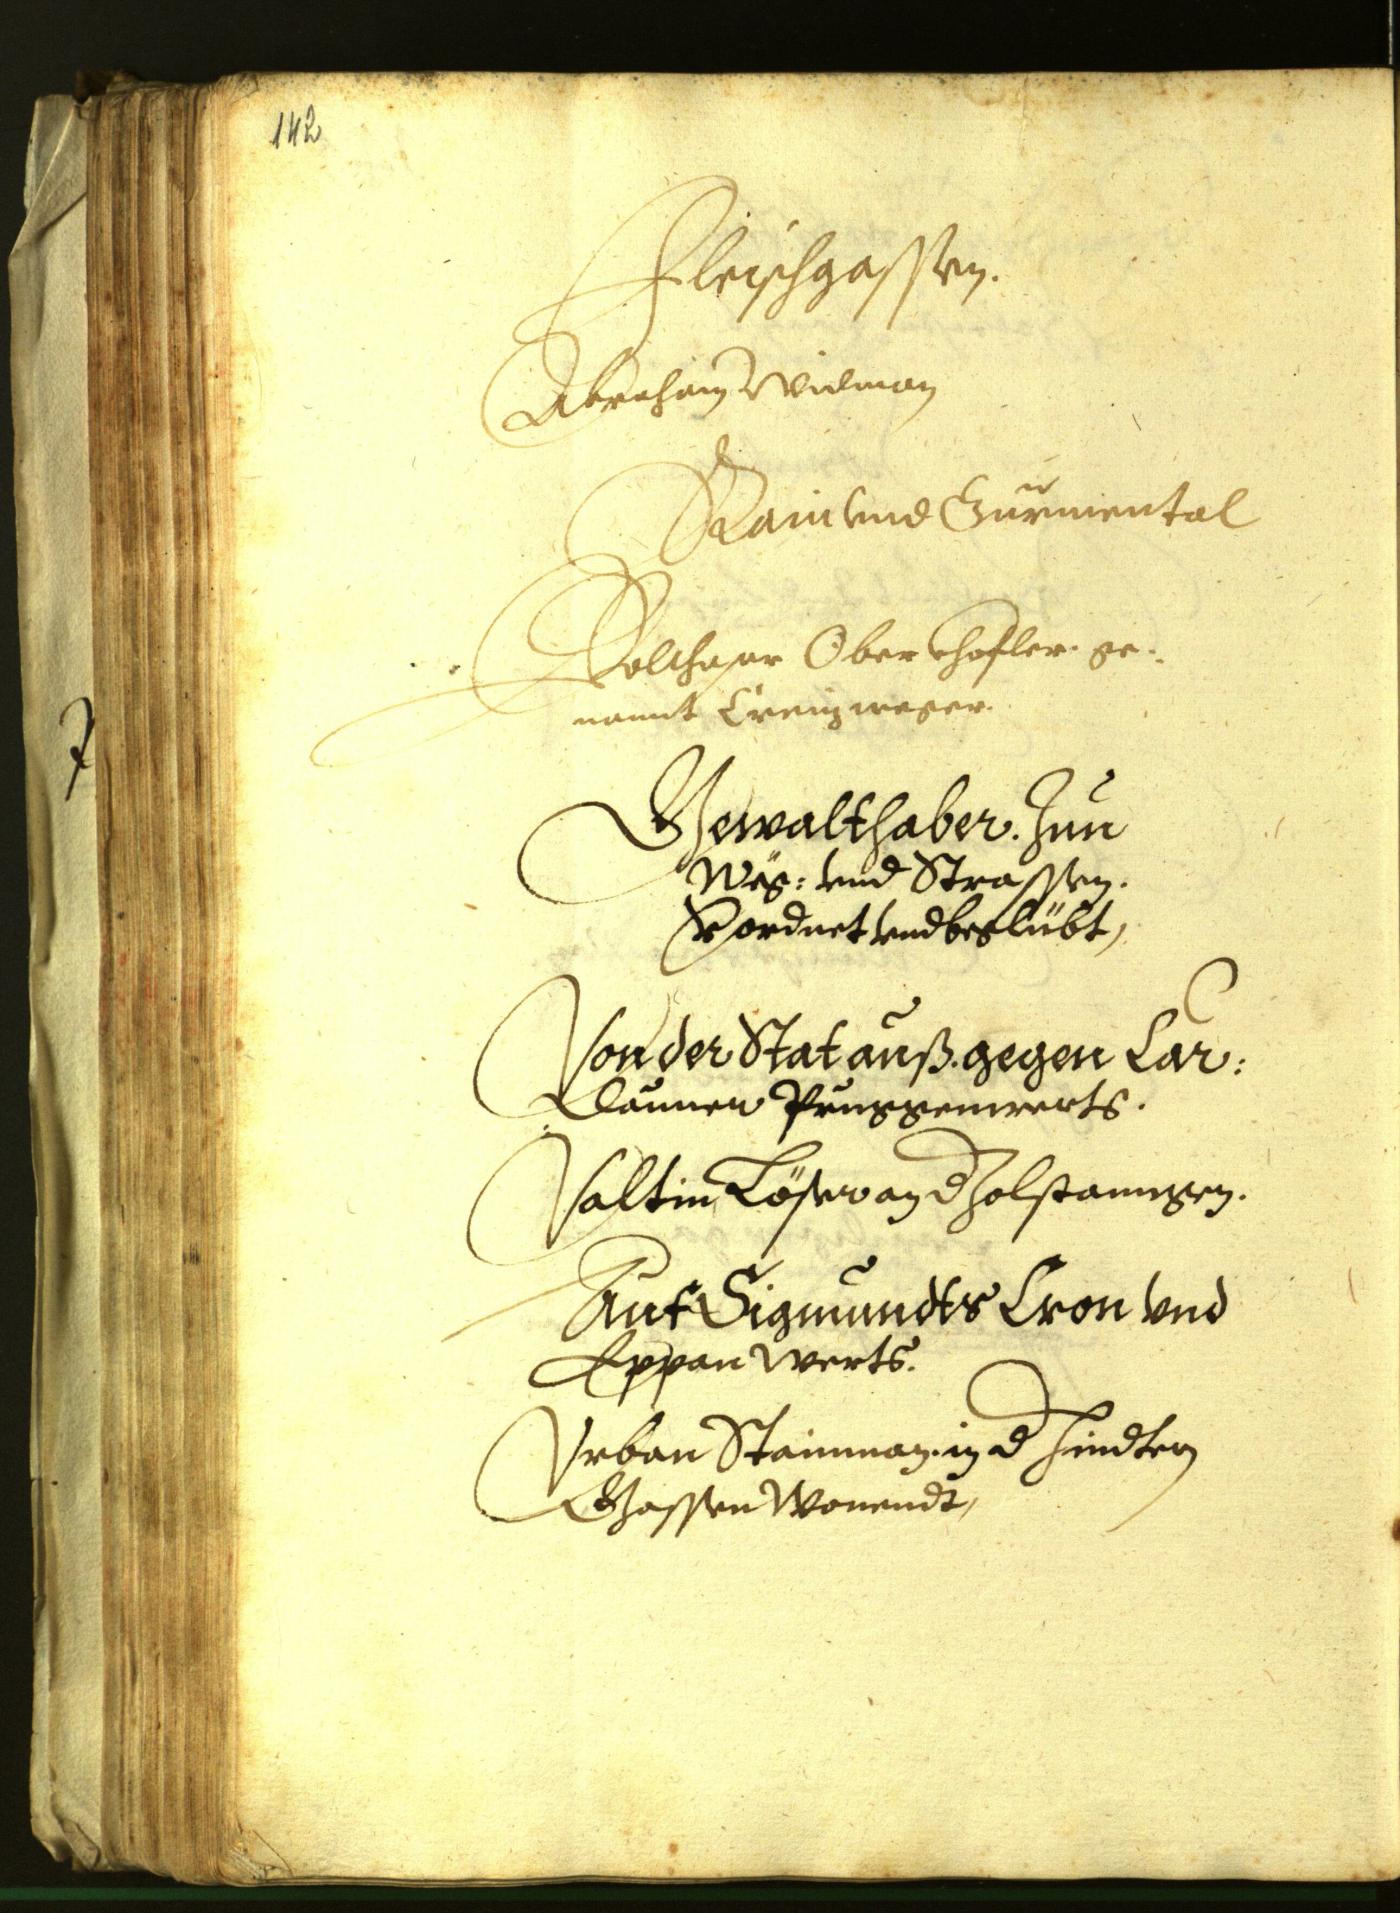 142
Fleischgassen.
Abraham Widman
Rain vnd Gurmental
Balthasar Oberhofler ge:
nannt Creuzweger.
Gewalthaber Zun
Weg: vnd Strassen.
Verordnet vnd beglübt,
Von der Stat auß gegen Car:
Dauner Pruggenwerts.
Valtin Löser an d
Auf Sigmundts Cron vnd
Eppan werts.
Vrban Stainman in d hindtern
Gassen Wonendt,